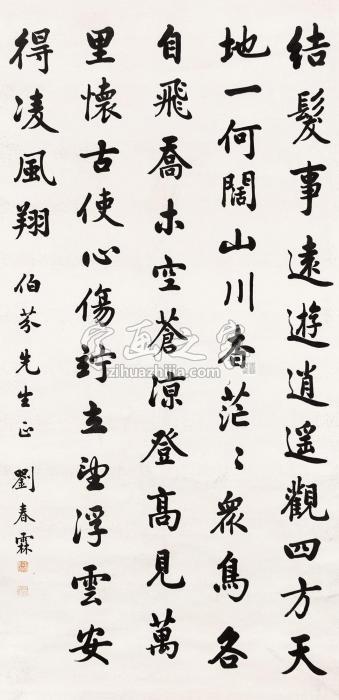 结髮事遠遊逍遥觀四方天
地一何闊山川杳茫〻眾鳥各
自飛喬木空蒼涼登高見萬
里懷古使心傷竚立望浮雲安
得淩風翔
伯芬先生正
劉春霖
字画之家
zihuazhijia.com